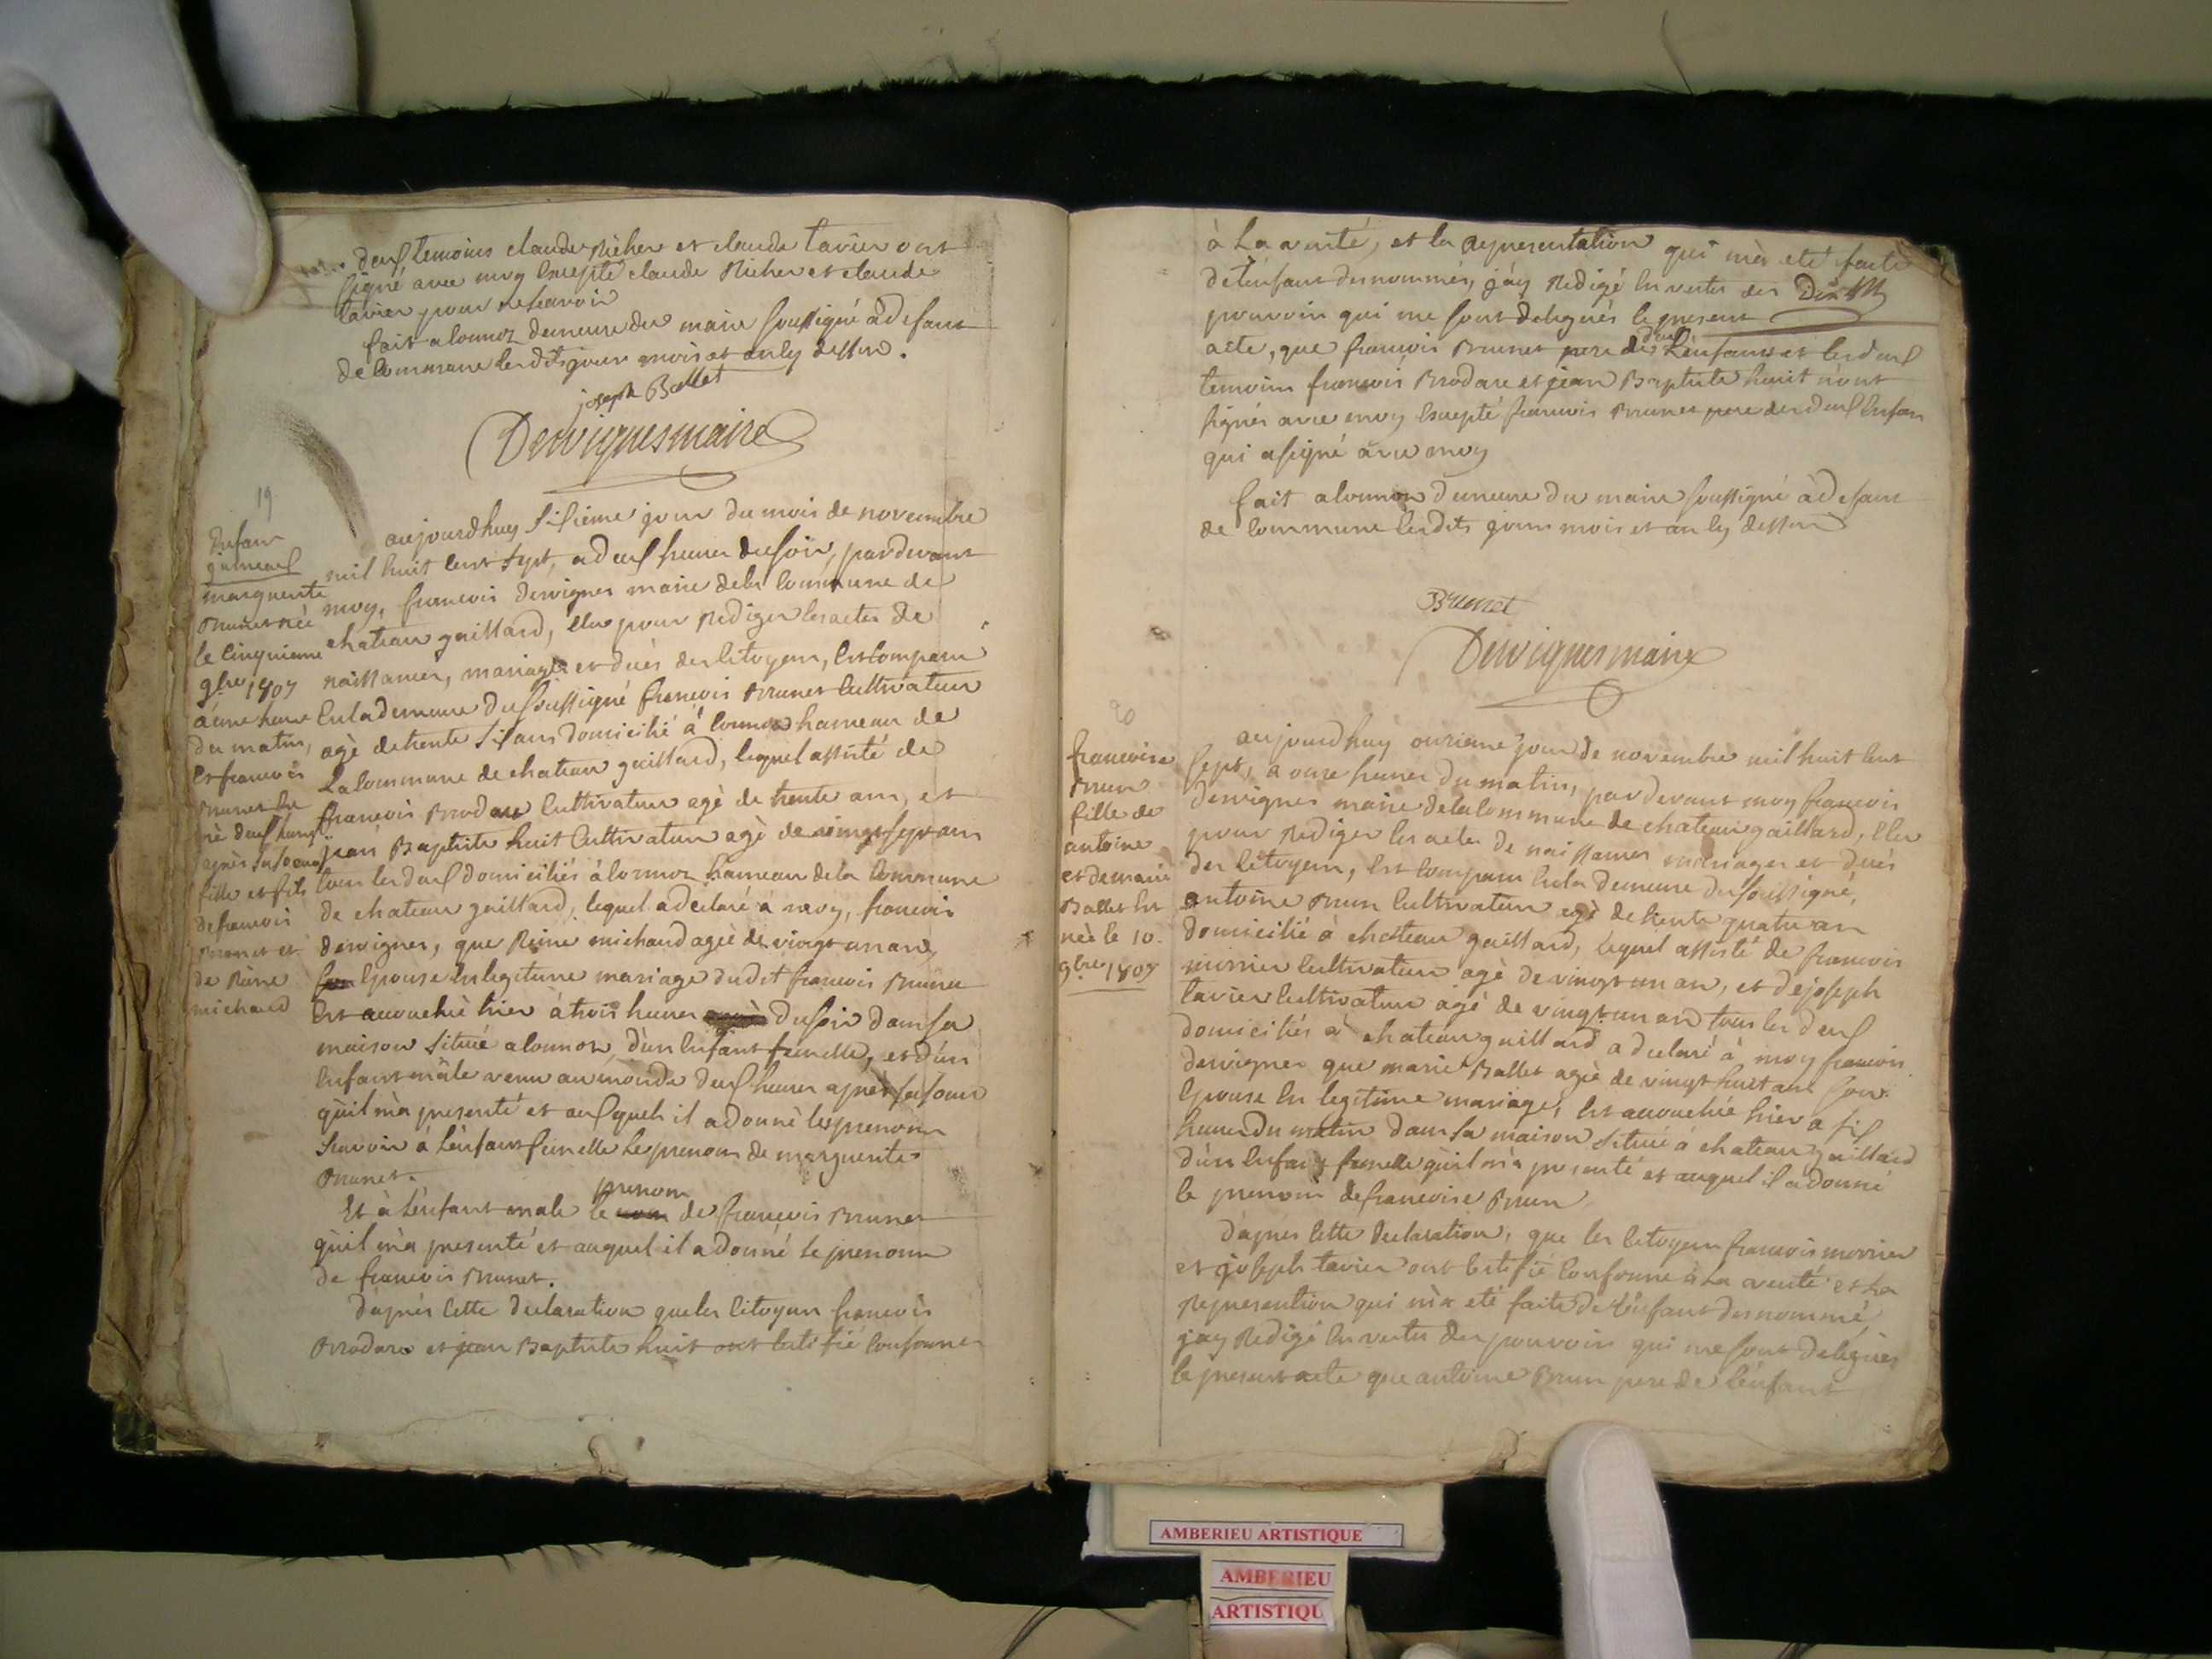 deux temoins claude Richer et claude tavier ont
signé avec moy Excepté claude Richer et claude
tavier pour ne savoir
fait a lonnoz demeure du maire soussigné à defaut
de commune les dits jour mois et an cy dessus.
joseph Ballet
Desvignes maire
19
Enfans
gumeaux
marguerite
Brunet née
le cinquieme
9bre 1807
à une heure
du matin,
et francois
Brunet
né deux heures
après sa soeur
fille et fils
de francois
Brunet et
de Reine
michaud
aujourdhuy sixieme jour du mois de novembre
mil huit cent sept, a deux heures du soir, pardevant
moy, francois desvignes maire de la commune de
chateau gaillard, elu pour Rediger les actes de
naissances, mariages et décès des citoyens, Est comparu
En la demeure du soussigné francois Brunet Cultivateur
agé de trente six ans domicilié à lonnoz hameau de
La commune de chateau gaillard, lequel assisté de
francois Brodare Cultivateur agé de trente ans, et
jean Baptiste huit Cultivateur agé de vingt sept ans
tous les deux domiciliés à lonnoz hameau de la Commune
de chateau gaillard, lequel a déclaré à moy, francois
desvignes, que Reine michaud agée de vingt un ans,
son Epouse En legitime mariage du dit francois Brunet
Est accouchée hier à trois heures du soir dans sa
maison située a lonnoz, d'un Enfant femelle, et d'un
Enfant mâle venu au monde deux heures après sa soeur
qu'il m'a presenté et auxquels il a donné les prenoms
Scavoir à L'enfant femelle Le prenom de marguerite
Brunet.
Et à L'enfant male le nom prenom de francois Brunet
qu'il m'a presenté et auquel il a donné Le prenom
de francois Brunet.
D'après Cette declaration que les Citoyens francois
Brodare et jean Baptiste huit ont Certifié Conforme
à La verité, et la Representation qui m'a eté faite
de L'enfant denommés, j'ay Redigé En vertu des Dix
pouvoirs qui me sont delegués le present
acte, que francois Brunet pere des deux L'enfans et les deux
temoins francois Brodare et jean Baptiste huit n'ont
signés avec moy Excepté francois Brunet pere des deux Enfans
qui a signé avec moy
fait a lonnoz demeure du maire soussigné à defaut
de Commune les dits jour mois et an cy dessus
Brunet
Desvignes maire
20
francoise
Brun
fille de
antoine
et de marie
Ballet Est
née le 10.
9bre 1807
aujourdhuy onzieme jour de novembre mil huit cent
sept, a onze heures du matin, pardevant moy francois
desvignes maire de la commune de chateau gaillard, Elu
pour Rediger les actes de naissances mariages et décès
des Citoyens, Est comparu En la demeure du soussigné,
antoine Brun Cultivateur agé de trente quatre ans
domicilié à chateau gaillard, Lequel assisté de francois
morrier Cultivateur agé de vingt un ans, et de joseph
tavier Cultivateur agé de vingt un ans tous les deux
domiciliés à chateau gaillard a declaré à moy francois
desvignes que marie Ballet agée de vingt huit ans son
Epouse En legitime mariage, Est accouchée hier a six
heures du matin dans sa maison située à chateau gaillard
d'un Enfant femelle qu'il m'a presenté et auquel il a donné
le prenom de francoise Brun
D'apres Cette declaration, que les Citoyens francois morrier
et joseph tavier ont Certifié Conforme à La verité et La
Represention qui m'a eté faite de L'enfant denommé,
j'ay Redigé En vertu des pouvoirs qui me sont delegués
le present acte que antoine Brun pere de L'enfant
AMBERIEU ARTISTIQUE
AMBERIEU
ARTISTIQU